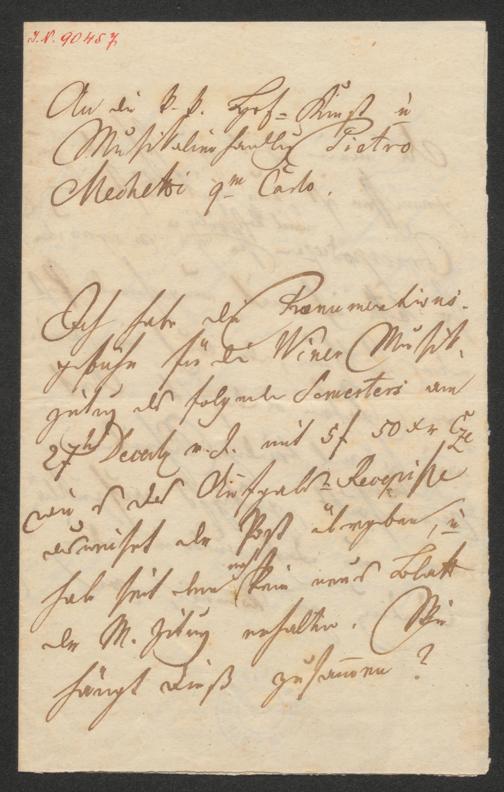 I.N. 90457
An die k. k. Hof- Kunst u
Musikalienhandlg Pietro
Mechetti qm Carlo.
Ich habe die Pränumerations-
gebühr für die Wiener Musik-
zeitung des folgende Semesters am
27ten Decemb v. J. mit 5 f 50 xr
wie es das Aufgabs-Recepisse
ausweiset der Post übergeben, u
habe seit dem noch kein neues Blatt
der M. Zeitung erhalten. Wie
hängt dieß zusammen?